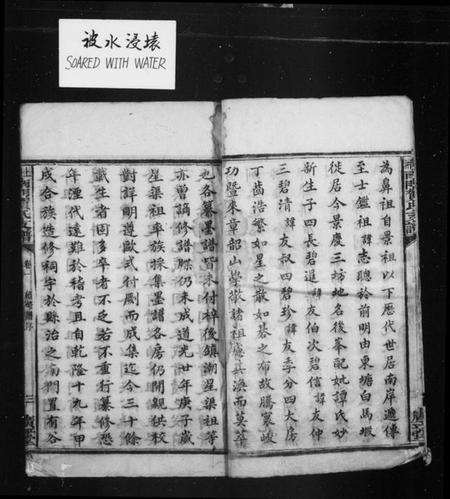 被水浸壊
SOARED WITH WATER
為鼻祖自景祖以下歷代世居南岸遞傳
至士鑑祖諱志聰於前明由東塘白馬堰
徙居今景慶三坊地名後峯配妣譚氏妙
新生子四長碧追諱友伯次碧信諱友仲
三碧清諱友叔四碧珍諱友季分四大房
丁齒浩繁如星之散如碁之布故騰襄峻
功暨來章部山榮激諸祖慮其渙而莫萃
也各纂墨譜皆未付梓後鎮湖星渠祖等
亦曾謫修譜牒仍未成道光廿年庚子歲
星渠祖率族採集墨譜各房仍開親供校
對詳明遵歐式付劂而成集迄今三十餘
載生者固多卒者不乏若不重行纂修恐
年湮代遠難於稽考且自乾隆十九年甲
戌合族造修祠宇於縣治之南門置有谷